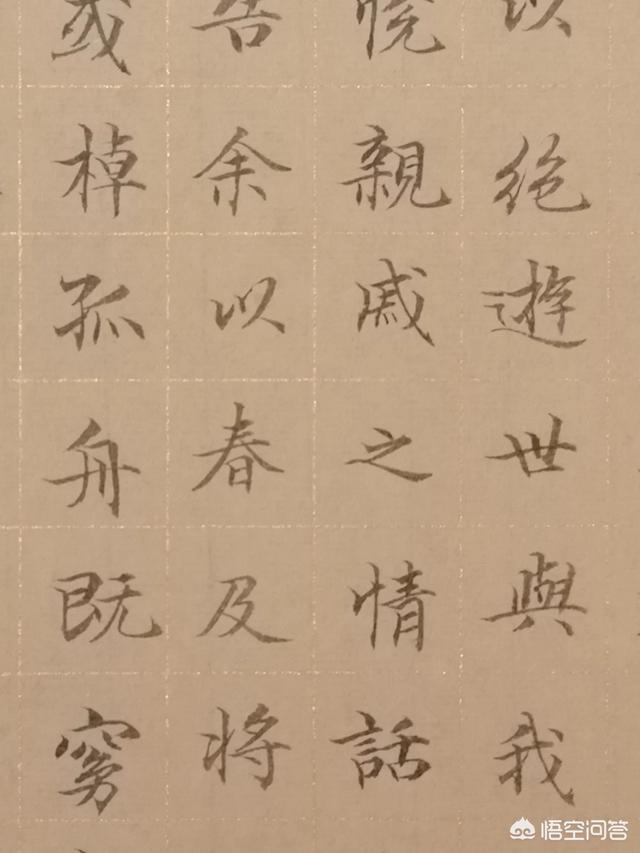 以絶遊世與我
悦親戚之情話
告余以春及将
或棹孤舟既窈
悟空问答